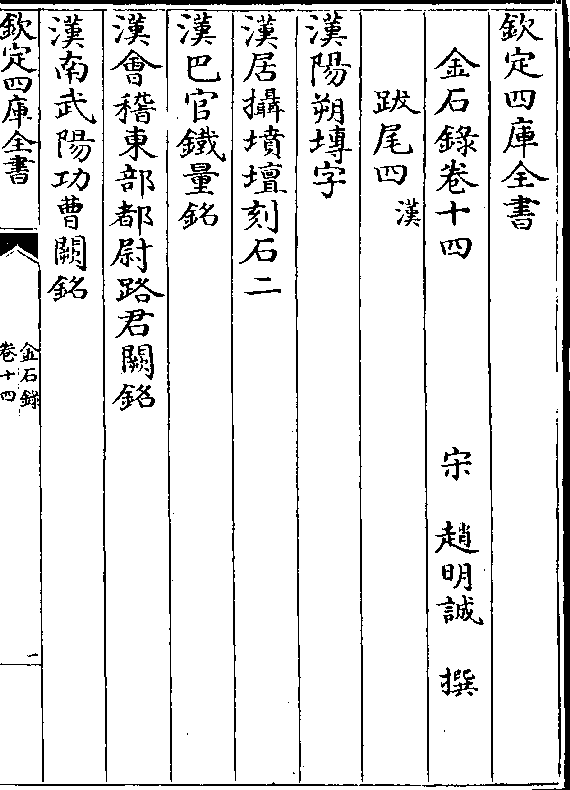 欽定四庫全書
金石錄卷十四
宋 趙明誠 撰
跋尾四 漢
漢陽朔塼字
漢居攝墳壇刻石二
漢巴官鐵量銘
漢會稽東部都尉路君闕銘
漢南武陽功曹闕銘
欽定四庫全書
金石錄
卷十四
一